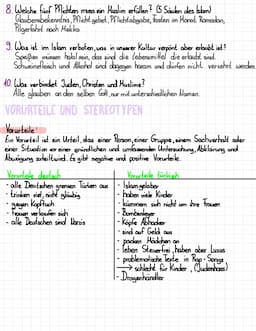 8. Welche fünf Pflichten muss ein Muslim erfüllen? (5 Säulen des Islam)
Glaubensbekenntnis, Pflichtgebet, Pflichtabgabe, Fasten im Monat Ramadan,
Pilgerfahrt nach Mekka
9. Was ist im Islam verboten, was in unserer Kultur verpönt aber erlaubt ist?
Speißen müssen halal sein, das sind die Lebensmittel die erlaubt sind.
Schweinefleisch und Alkohol sind dagegen haram und dürfen nicht verzehrt werden.
10. Was verbindet Juden, Christen und Muslime?
Alle glauben an den selben Gott, nur mit unterschiedlichen Namen.
VORURTEILE UND STEREOTYPEN
Vorurteile:
Ein Vorurteil ist ein Urteil, das einer Person, einer Gruppe, einem Sachverhalt oder
einer Situation vor einer gründlichen und umfassenden Untersuchung, Abklärung und
Abwägung zuteil wird. Es gibt negative und positive Vorurteile.
Vorurteile deutsch
- alle Deutschen grenzen Türken aus
- trinken viel, nicht gläubig
- gegen Kopftuch
- Frauen verkaufen sich
- alle Deutschen sind Nazis
Vorurteile türkisch
- Islamgelaber
- haben viele Kinder
- kümmern sich nicht um ihre Frauen
- Bombenleger
- Köpfe Abhacker
- sind auf Geld aus
- packen Mädchen an
- leben Steuerfrei, haben aber Luxus
- problematische Texte in Rap-Songs
→ schlecht für Kinder, (Judenhass)
- Drogenhändler